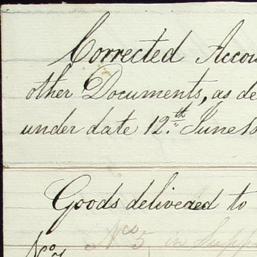 Corrected Accou
other Documents, as de
under date 12th June 18
Goods delivered to
Nos